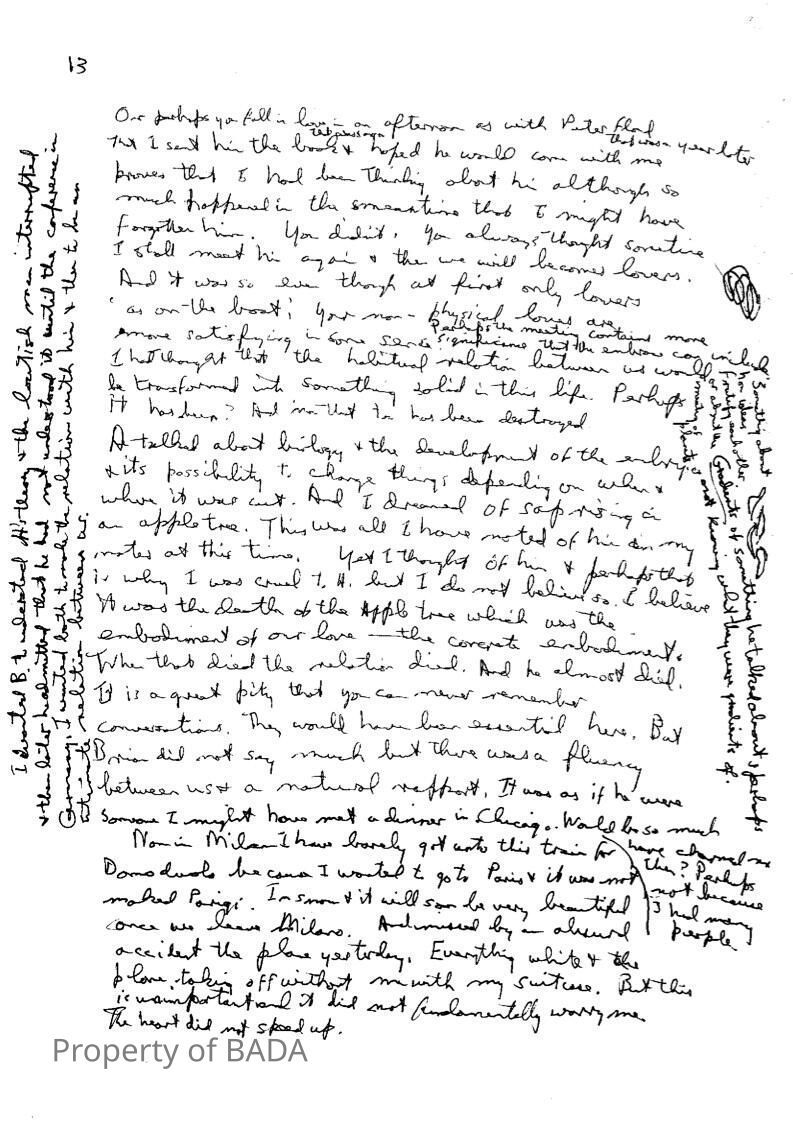 13
Or perhaps you fall in love in an afternoon as with Peter Flood
that was a year later
That I sent him the book & hoped he would come with me
proves that I had been thinking about him although so
much happened in the meantime that I might have
forgotten him. You didn't. You always thought sometime
I shall meet him again & then we will become lovers.
And it was so even though at first only lovers
'as on the boat'; your non-physical loves are
more satisfying in some sense
Perhaps the meeting contains more
significance that the embrace can include
I had thought that the habitual relation between us would
be transformed into something solid in this life. Perhaps
it has been? And
has been destroyed
A talked about biology & the development of the embryo
& its possibility to change things depending on when &
where it was cut. And I dreamed of sap rising in
an apple tree. This was all I have noted of him in my
notes at this time. Yet I thought of him & perhaps that
is why I was cruel to H. but I do not believe so. I believe
it was the death of the apple tree which was the
embodiment of our love — the concrete embodiment.
When that died the relation died. And he almost died.
It is a great pity that you can never remember
conversations. They would have been essential here. But
Brian did not say much but there was a fluency
between us & a natural rapport. It was as if he were
someone I might have met at dinner in Chicago. Would he so much
have charmed me
then? Perhaps
not because
I had many
people.
Now in Milan I have barely got onto this train for
Domodossola because I wanted to go to Paris & it was not
marked Parigi. In snow & it will soon be very beautiful
once we leave Milano. And missed by an absurd
accident the plane yesterday. Everything white & the
plane taking off without me with my suitcase. But this
is unimportant and it did not fundamentally worry me.
The heart did not speed up.
I wanted B. to understand H's theory & the
man interrupted
& then later he admitted that he had not understood it until the conference in
Germany. I wanted both to make the relation with him & then to be an
intimate relation between us.
Something about
how ideas
fructify each other
or about the Gradients of something he talked about & perhaps
meeting of
planets & not knowing what they were gradients of.
Property of BADA